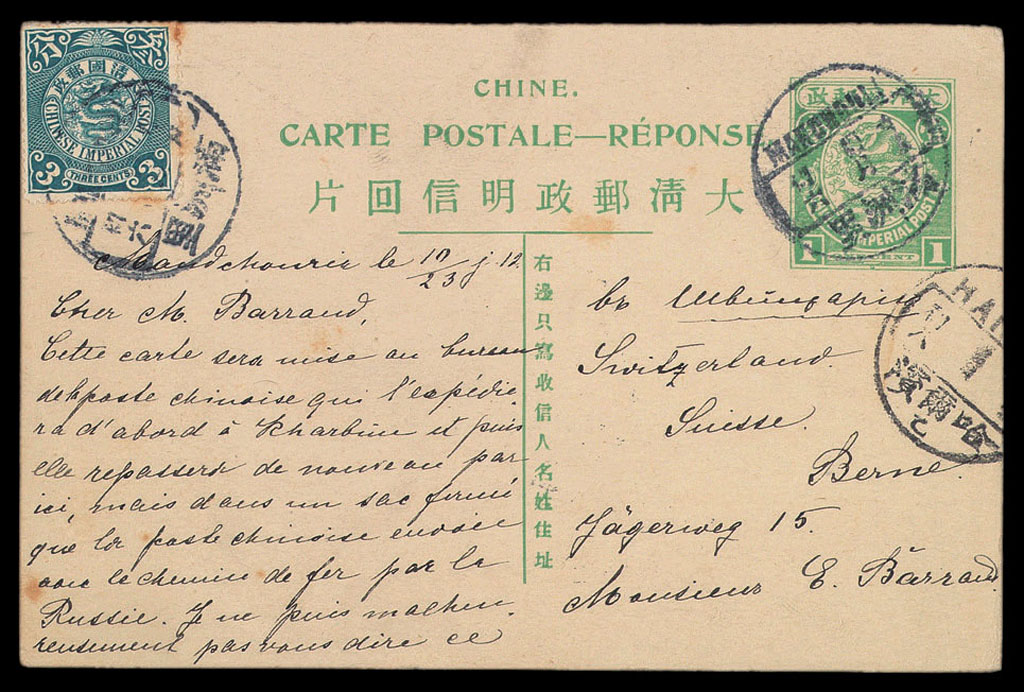 政郵國清
CHINESE IMPERIAL POST
3 THREE CENTS 3
CHINE.
CARTE POSTALE—RÉPONSE
片回信明政郵清大
IMPERIAL POST
1 CENT 1
右邊只寫收信人名姓住址
Mandchourie le 10/23 j. 12
Cher M. Barraud,
Cette carte sera mise au bureau
de la poste chinoise qui l'expédie
ra d'abord à Kharbine et puis
elle repassera de nouveau par
ici, mais dans un sac fermé
que la poste chinoise envoie
avec le chemin de fer par la
Russie. Je ne puis malheu
reusement pas vous dire ce
въ Швейцарiю
Switzerland.
Suisse.
Berne.
Jägerweg 15.
Monsieur E. Barraud
HAR
哈爾濱